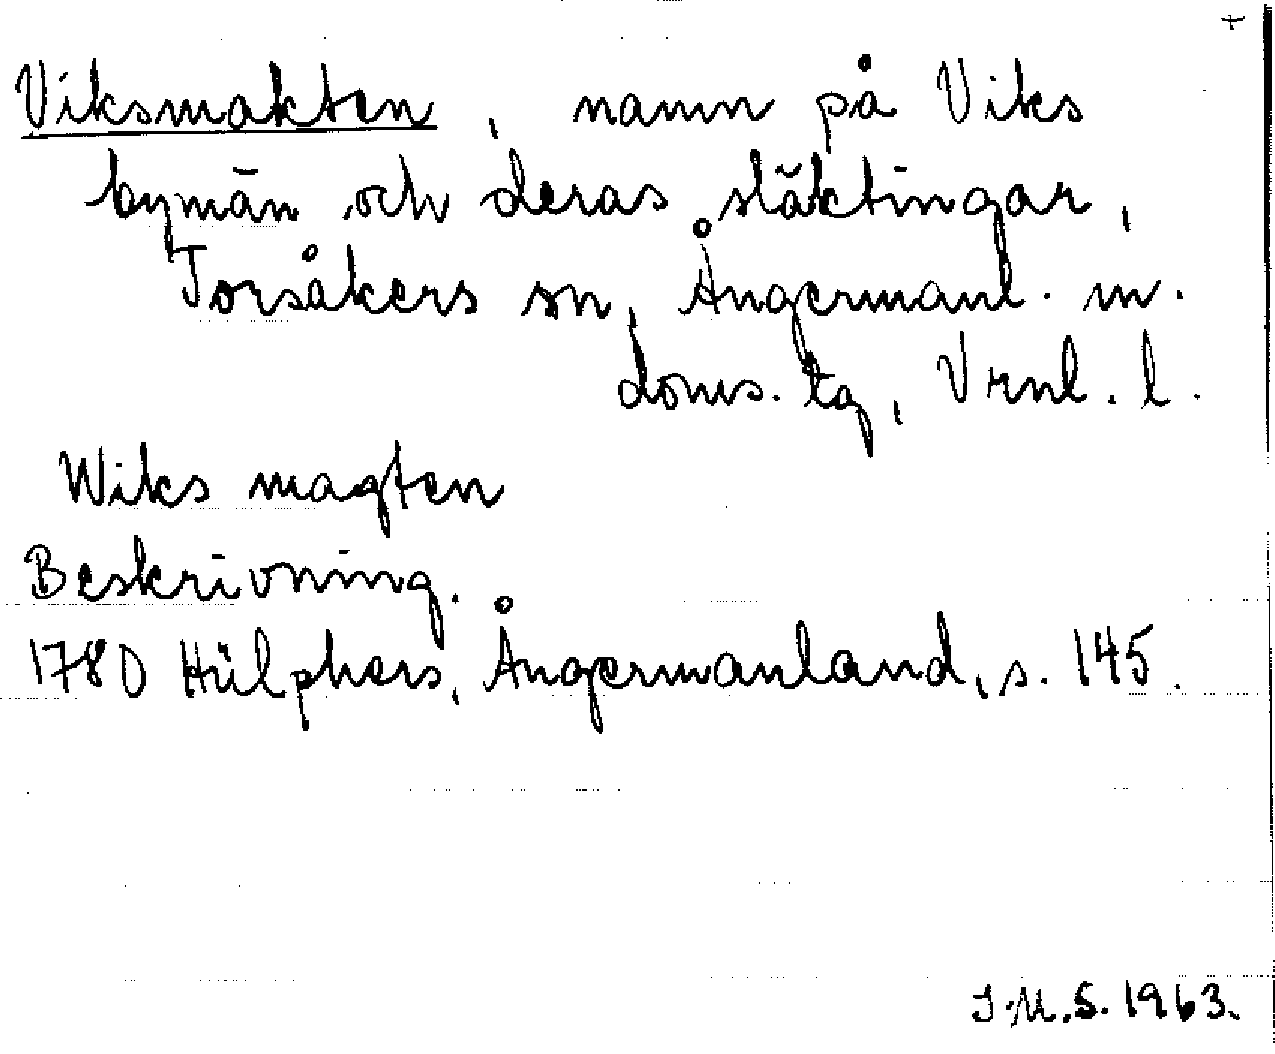 +
Viksmakten, namn på Viks
bymän och deras släktingar,
Torsåkers sn, Ångermanl. m.
doms. tg, Vrnl. l.
Wiks magten
Beskrivning.
1780 Hülphers, Ångermanland, s. 145.
I.M.S. 1963.